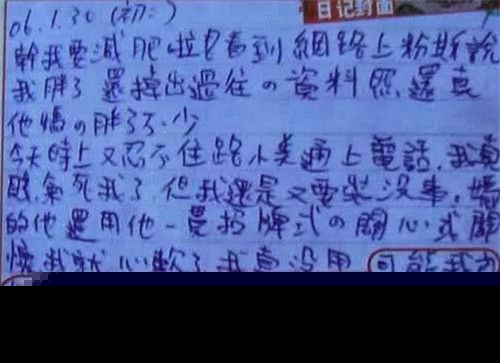 06.1.30 (初二) 日记封面
幹我要減肥啦 看到網路上粉絲說
我胖了 還出過往の資料照,還真
他媽の胖了不少
今天晚上又忍不住跟小美通上電話,我真
氣死我了 但我還是又要裝沒事,媽
的他還用他一貫招牌式の關心或關
懷我就心軟了 我真沒用 可能我